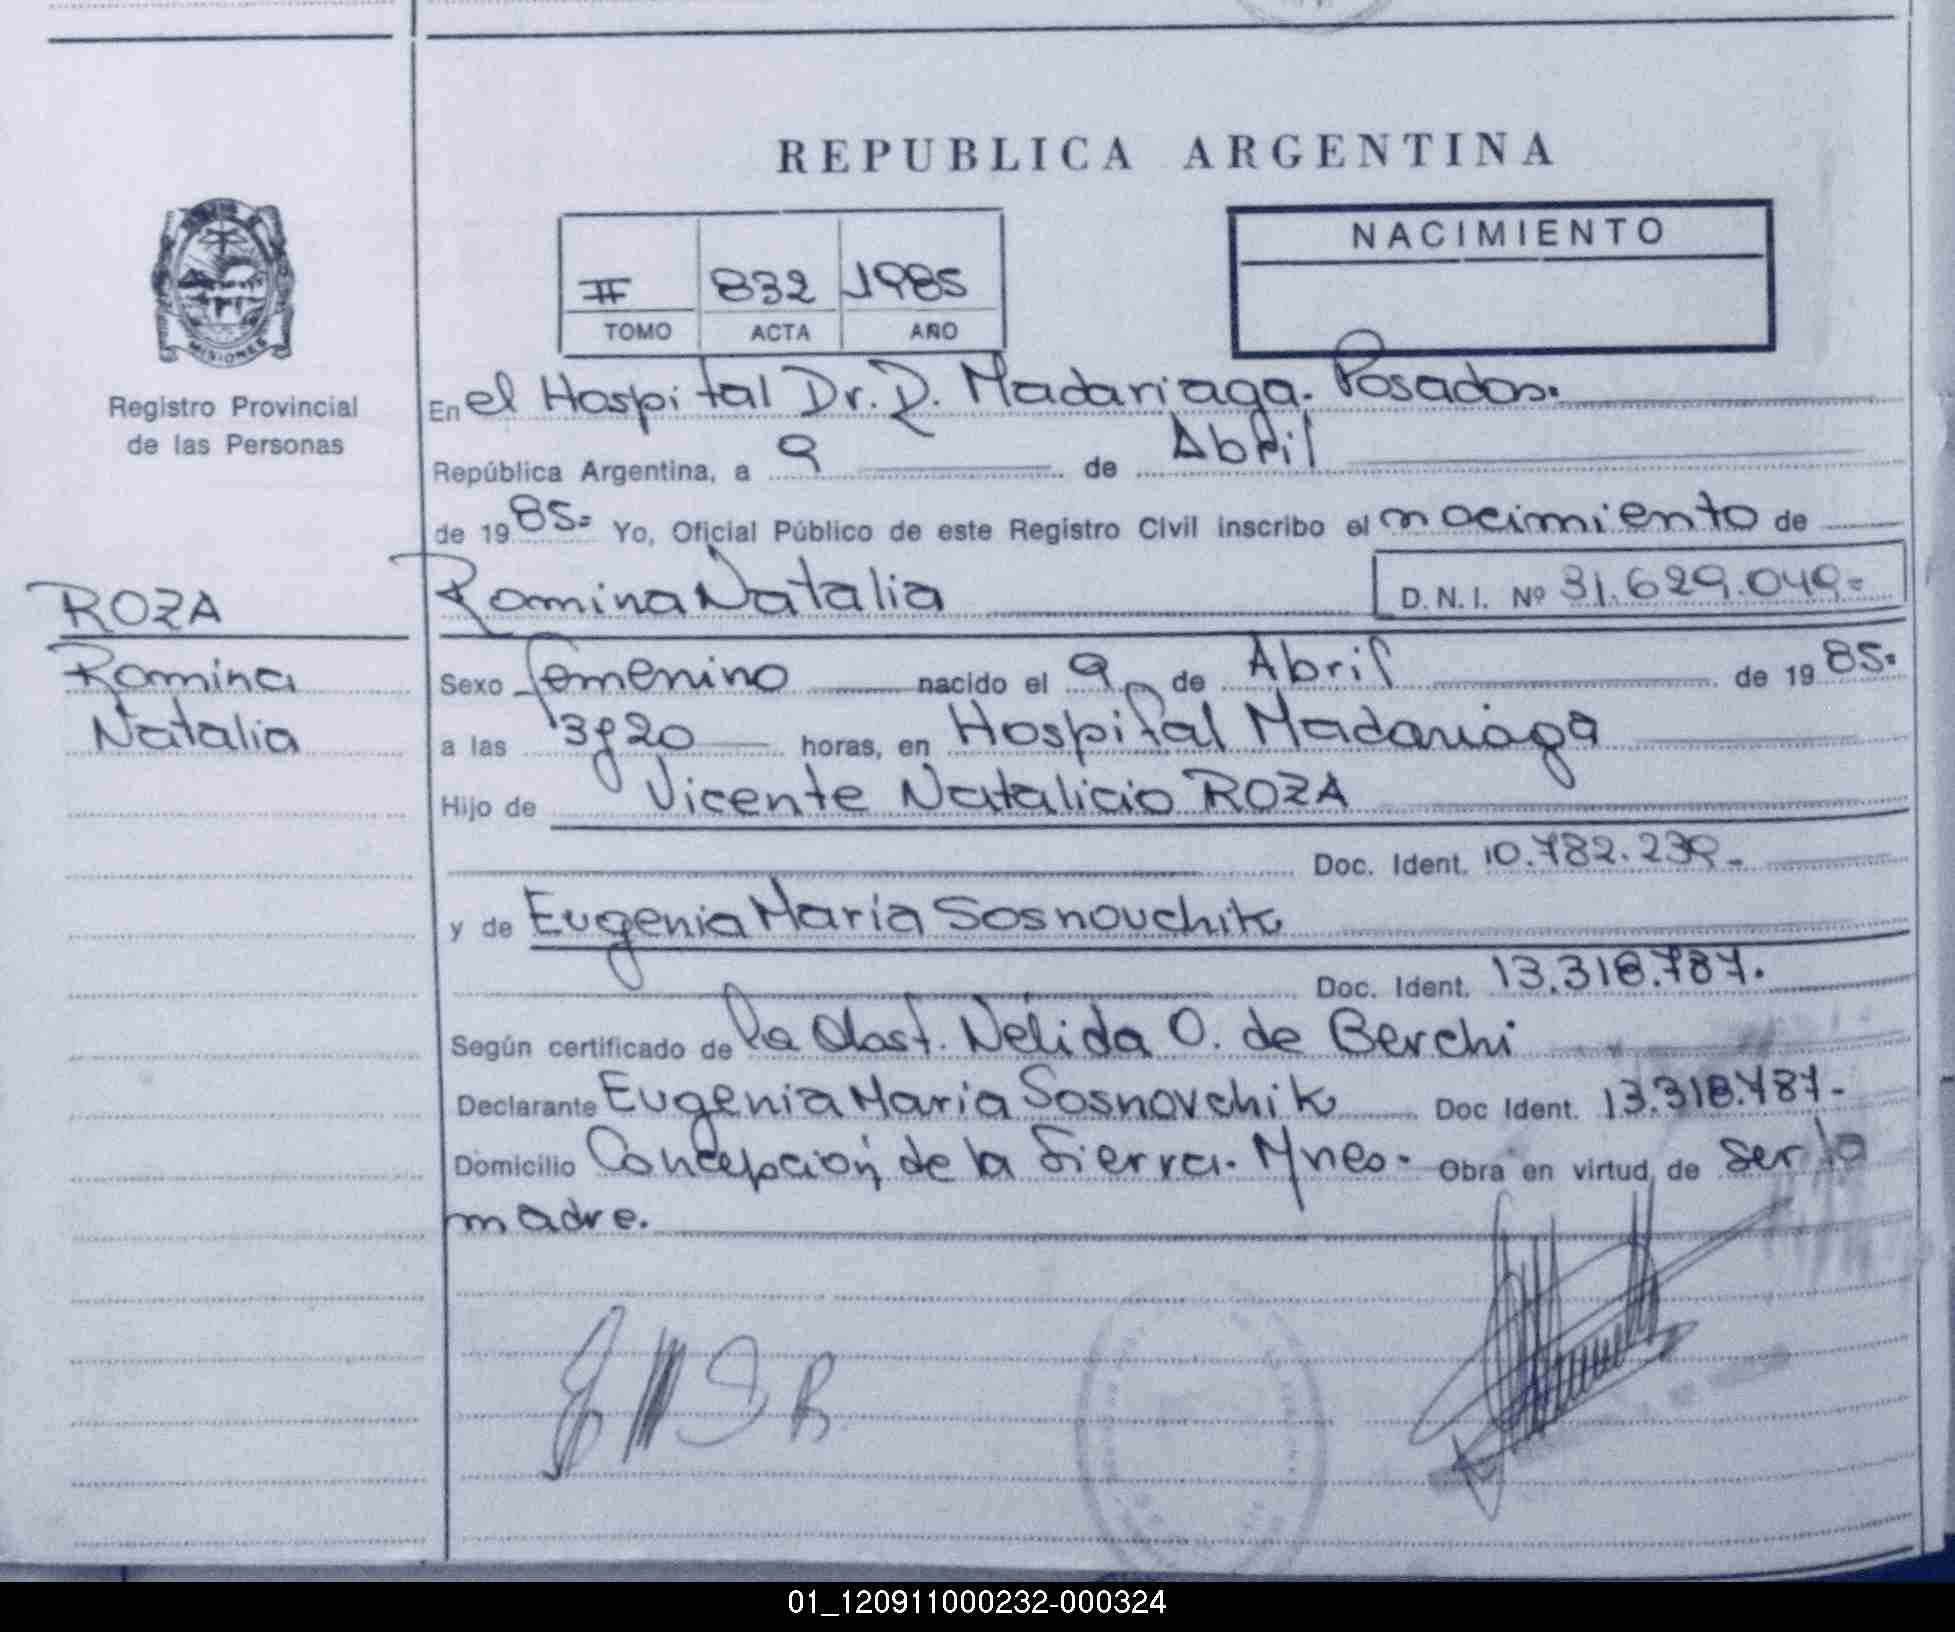 REPUBLICA ARGENTINA
NACIMIENTO
II 832 1985
TOMO ACTA AÑO
MISIONES
Registro Provincial
de las Personas
En el Hospital Dr. R. Madariaga. Posadas.
República Argentina, a 9 de Abril
de 1985= Yo, Oficial Público de este Registro Civil inscribo el nacimiento de
ROZA
Romina Natalia D.N.I. Nº 31.629.049=
Romina
Natalia
Sexo femenino nacido el 9 de Abril de 1985.
a las 3y20 horas, en Hospital Madariaga
Hijo de Vicente Natalicio ROZA
Doc. Ident. 10.782.239-
y de Eugenia María Sosnouchik
Doc. Ident. 13.318.787.
Según certificado de la Obst. Nélida O. de Berchi
Declarante Eugenia María Sosnovchik Doc Ident. 13.318.787-
Domicilio Concepción de la Sierra. Mnes. Obra en virtud de ser la
madre.
01_120911000232-000324